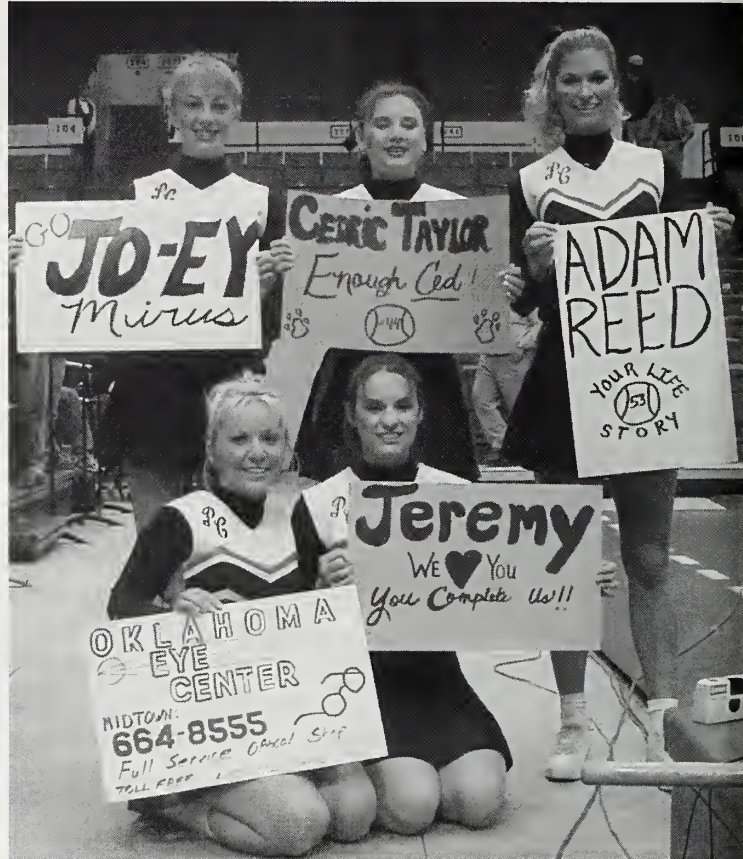 104
PC
PC
GO
JO-EY
Mirus
CEDRIC TAYLOR
Enough Ced!
44
ADAM
REED
YOUR LIFE
53
STORY
PC
P
Jeremy
WE ♥ You
You Complete Us!!
OKLAHOMA
EYE
CENTER
MIDTOWN:
664-8555
Full Service Optical Shop
TOLL FREE